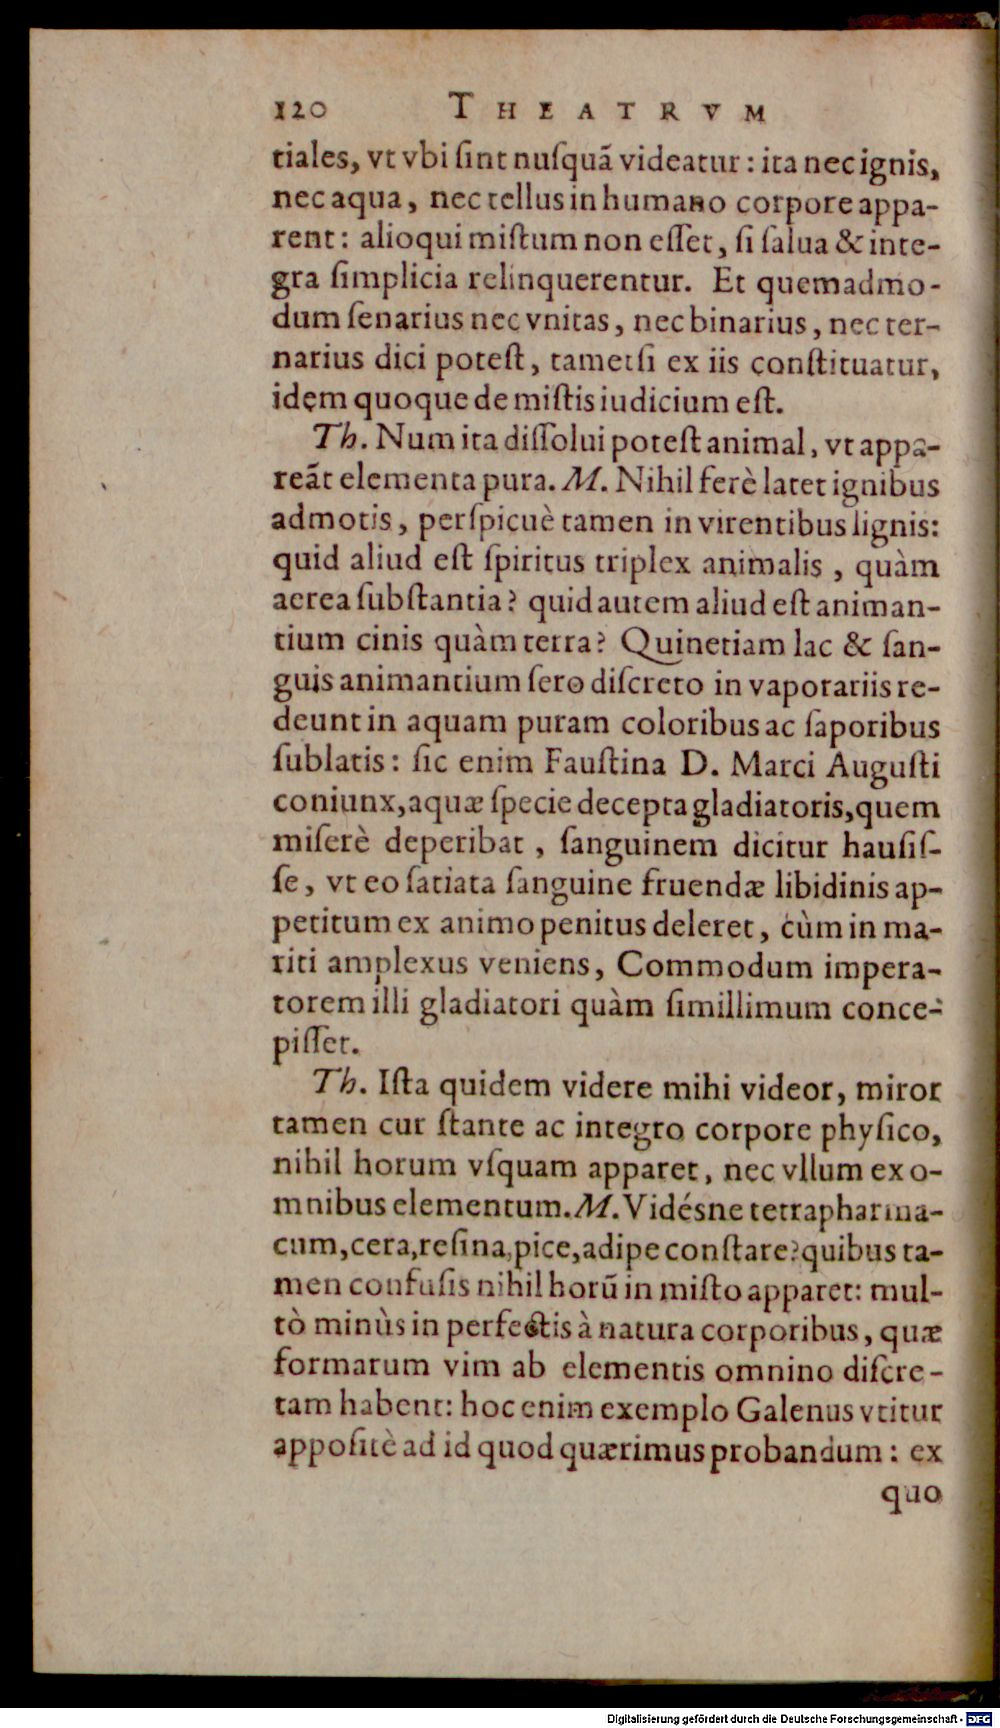 120 THEATRVM
tiales, vt vbi ſint nuſquā videatur : ita nec ignis,
nec aqua, nec tellus in humano corpore appa-
rent : alioqui miſtum non eſſet, ſi ſalua & inte-
gra ſimplicia relinquerentur. Et quemadmo-
dum ſenarius nec vnitas, nec binarius, nec ter-
narius dici poteſt, tametſi ex iis conſtituatur,
idem quoque de miſtis iudicium eſt.
Th. Num ita diſſolui poteſt animal, vt appa-
reāt elementa pura. M. Nihil ferè latet ignibus
admotis, perſpicuè tamen in virentibus lignis:
quid aliud eſt ſpiritus triplex animalis, quàm
aerea ſubſtantia? quid autem aliud eſt animan-
tium cinis quàm terra? Quinetiam lac & ſan-
guis animantium ſero diſcreto in vaporariis re-
deunt in aquam puram coloribus ac ſaporibus
ſublatis : ſic enim Fauſtina D. Marci Auguſti
coniunx, aquæ ſpecie decepta gladiatoris, quem
miſerè deperibat, ſanguinem dicitur hauſiſ-
ſe, vt eo ſatiata ſanguine fruendæ libidinis ap-
petitum ex animo penitus deleret, cùm in ma-
riti amplexus veniens, Commodum impera-
torem illi gladiatori quàm ſimillimum conce-
piſſet.
Th. Iſta quidem videre mihi videor, miror
tamen cur ſtante ac integro corpore phyſico,
nihil horum vſquam apparet, nec vllum ex o-
mnibus elementum. M. Vidésne tetrapharma-
cum, cera, reſina, pice, adipe conſtare? quibus ta-
men confuſis nihil horū in miſto apparet: mul-
tò minùs in perfectis à natura corporibus, quæ
formarum vim ab elementis omnino diſcre-
tam habent: hoc enim exemplo Galenus vtitur
appoſitè ad id quod quærimus probandum : ex
quo
Digitalisierung gefördert durch die Deutsche Forschungsgemeinschaft - DFG